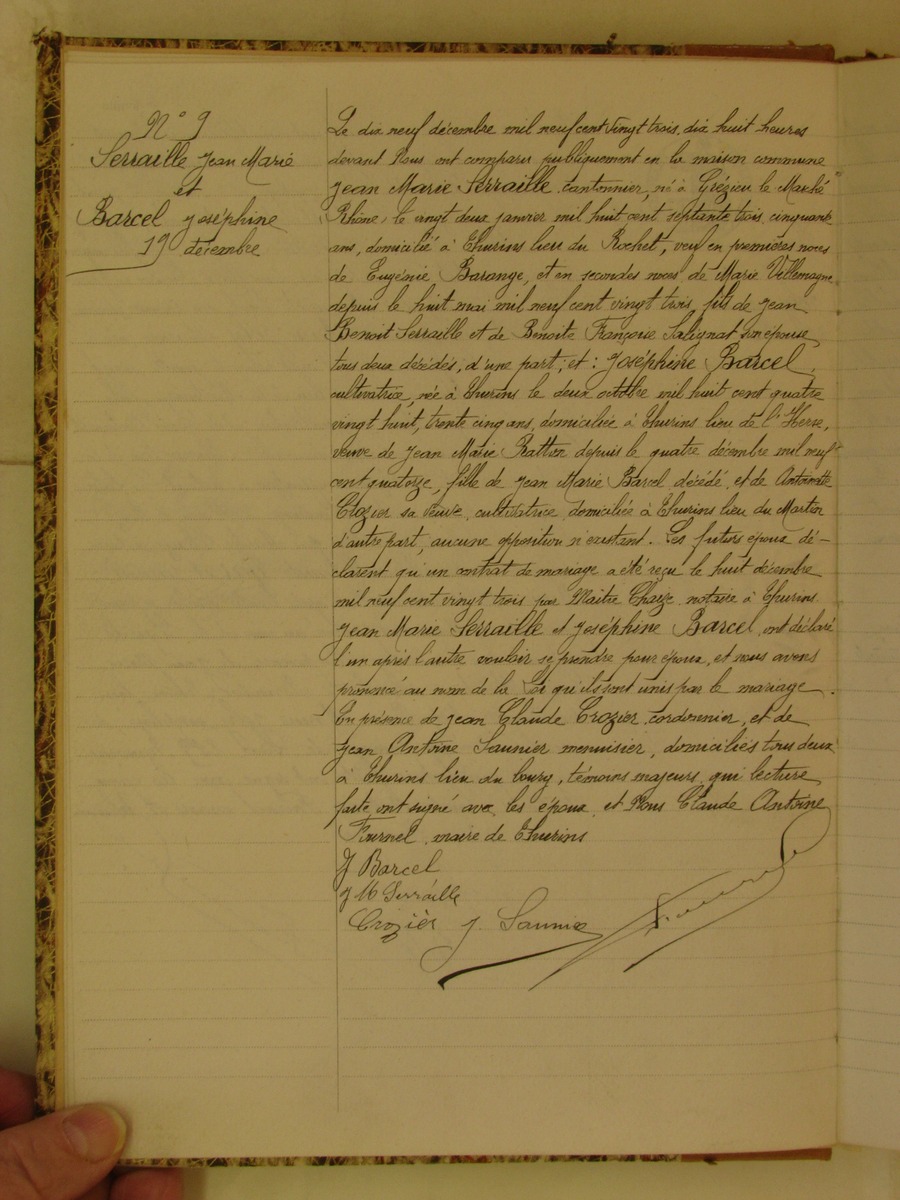 N° 9
Serraille Jean Marie
et
Barcel Joséphine
19 décembre
Le dix neuf décembre mil neuf cent vingt trois, dix huit heures
devant Nous ont comparu publiquement en la maison commune
Jean Marie Serraille, cantonnier, né à Grézieu le Marché
Rhône, le vingt deux janvier mil huit cent septante trois, cinquante
ans, domicilié à Thurins lieu du Rochet, veuf en premières noces
de Eugénie Barange, et en secondes noces de Marie Villemagne
depuis le huit mai mil neuf cent vingt trois, fils de Jean
Benoit Serraille et de Benoite Françoise Salignat son épouse
tous deux décédés, d'une part; et : Joséphine Barcel,
cultivatrice, née à Thurins le deux octobre mil huit cent quatre
vingt huit, trente cinq ans, domiciliée à Thurins lieu de l'Herse,
veuve de Jean Marie Ratton depuis le quatre décembre mil neuf
cent quatorze, fille de Jean Marie Barcel décédé, et de Antoinette
Crozier sa veuve, cultivatrice, domiciliée à Thurins lieu du Martin
d'autre part, aucune opposition n'existant. Les futurs époux dé-
clarent qu'un contrat de mariage a été reçu le huit décembre
mil neuf cent vingt trois par Maître Chaize notaire à Thurins.
Jean Marie Serraille et Joséphine Barcel, ont déclaré
l'un après l'autre vouloir se prendre pour époux, et nous avons
prononcé au nom de la Loi qu'ils sont unis par le mariage.
En présence de Jean Claude Crozier, cordonnier, et de
Jean Antoine Saunier menuisier, domiciliés tous deux
à Thurins lieu du bourg, témoins majeurs, qui lecture
faite ont signé avec les époux, et Nous Claude Antoine
Fournel, maire de Thurins
J Barcel
J M Serraille
Crozier J. Saunier Fournel